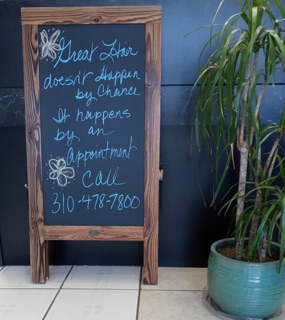 Great Hair
doesn't Happen
by Chance
It happens
by an
appointment
Call
310-478-7800